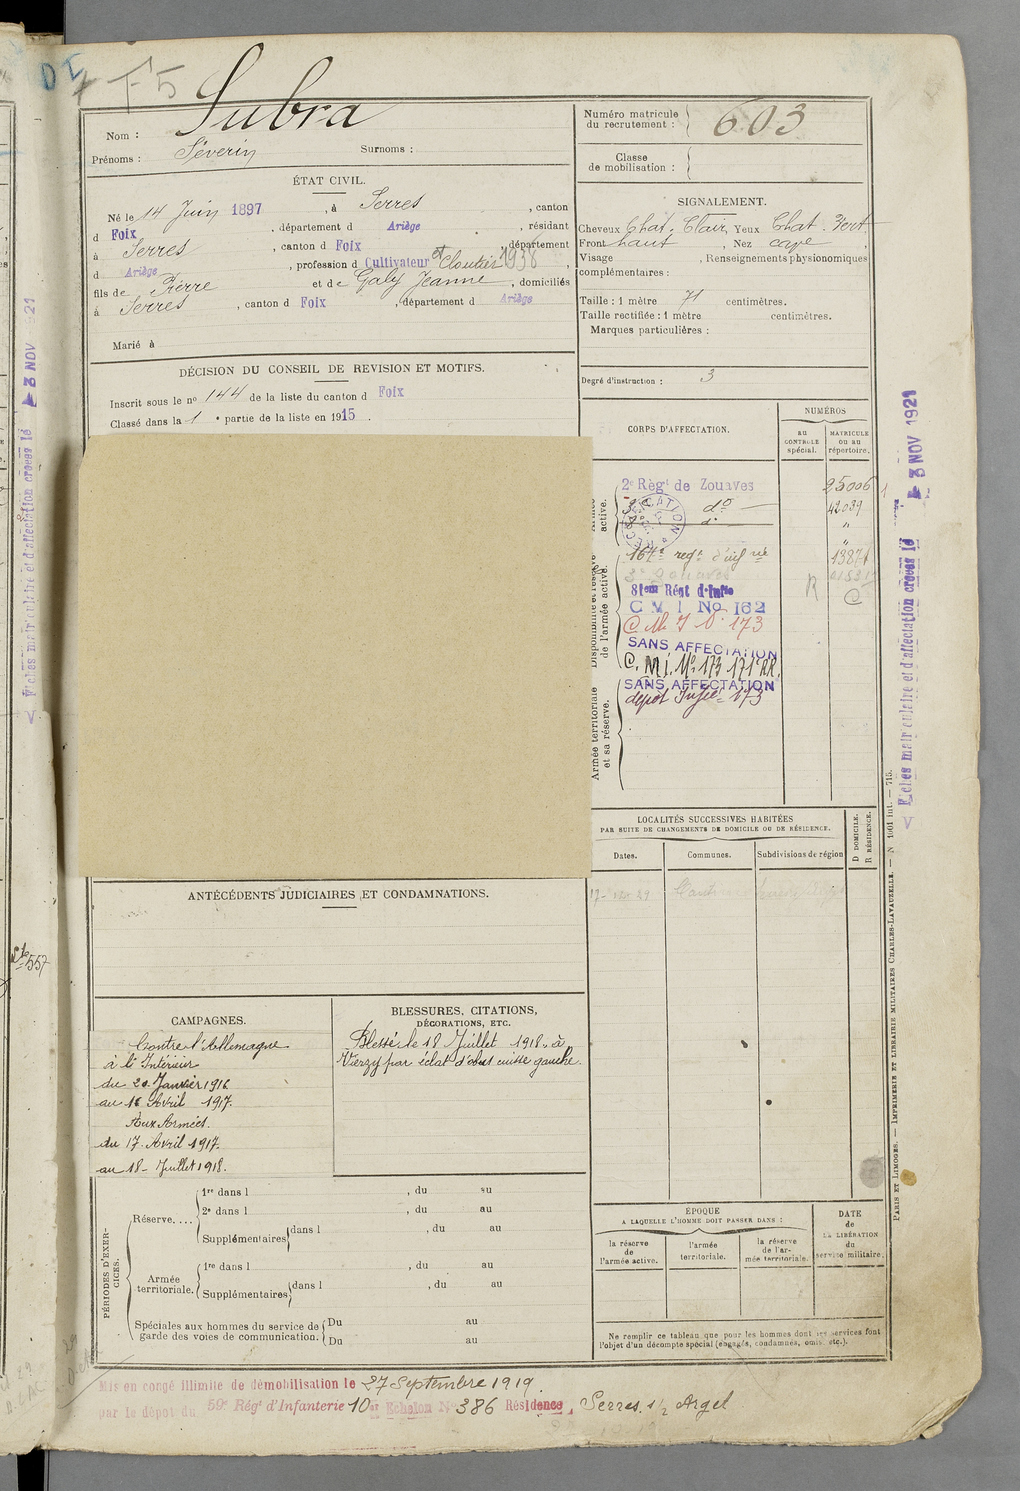 D I
F 5
Nom : Subra
Prénoms : Séverin Surnoms :
Numéro matricule du recrutement : 603
Classe de mobilisation :
ÉTAT CIVIL.
Né le 14 Juin 1897, à Serres, canton
d Foix, département d Ariège, résidant
à Serres, canton d Foix, département
d Ariège, profession d Cultivateur et Cloutier 1938,
fils de Pierre et de Galy Jeanne, domiciliés
à Serres, canton d Foix, département d Ariège
Marié à
SIGNALEMENT.
Cheveux Chat. Clair, Yeux Chat. Vert
Front haut, Nez cave,
Visage , Renseignements physionomiques
complémentaires :
Taille : 1 mètre 71 centimètres.
Taille rectifiée : 1 mètre centimètres.
Marques particulières :
Degré d'instruction : 3
DÉCISION DU CONSEIL DE REVISION ET MOTIFS.
Inscrit sous le no 144 de la liste du canton d Foix
Classé dans la 1 e partie de la liste en 1915.
CORPS D'AFFECTATION.
NUMÉROS
au CONTROLE spécial.
MATRICULE OU AU répertoire.
active.
2e Régt de Zouaves 25006
do 42089
do "
Disponibilité et réserve de l'armée active.
167e regt d'infrie 13871
3e Zouaves
81em Régt d'Infie
R C
C M I No 162
C. M. I No 173
SANS AFFECTATION
C. M.I. No 173 171e RR.
SANS AFFECTATION
dépôt Infie 173
Armée territoriale et sa réserve.
LOCALITÉS SUCCESSIVES HABITÉES
PAR SUITE DE CHANGEMENTS DE DOMICILE OU DE RÉSIDENCE.
Dates.
Communes.
Subdivisions de région
D DOMICILE.
R RÉSIDENCE.
ANTÉCÉDENTS JUDICIAIRES ET CONDAMNATIONS.
CAMPAGNES.
Contre l'Allemagne
à l'Intérieur
du 20 Janvier 1916
au 16 Avril 1917.
Aux Armées.
du 17 Avril 1917.
au 18 Juillet 1918.
BLESSURES, CITATIONS,
DÉCORATIONS, ETC.
Blessé le 18 Juillet 1918. à
Vierzy par éclat d'obus cuisse gauche.
PÉRIODES D'EXERCICES.
Réserve....
1re dans l , du au
2e dans l , du au
Supplémentaires dans l , du au
Armée territoriale.
1re dans l , du au
Supplémentaires dans l , du au
Spéciales aux hommes du service de garde des voies de communication.
Du au
Du au
ÉPOQUE
A LAQUELLE L'HOMME DOIT PASSER DANS :
la réserve de l'armée active.
l'armée territoriale.
la réserve de l'armée territoriale.
DATE de LA LIBÉRATION du service militaire.
Ne remplir ce tableau que pour les hommes dont les services font
l'objet d'un décompte spécial (engagés, condamnés, omis, etc.).
Mis en congé illimité de démobilisation le 27 Septembre 1919.
par le dépôt du 59e Régt d'Infanterie 10e Echelon No 386 Résidence, Serres s/ Arget
Fiches matriculaire et d'affectation créées le 3 NOV 1921
Fiches matriculaire et d'affectation créées le 3 NOV 1921
PARIS ET LIMOGES. — IMPRIMERIE ET LIBRAIRIE MILITAIRES CHARLES-LAVAUZELLE. — N 1001 int. — 715.
557